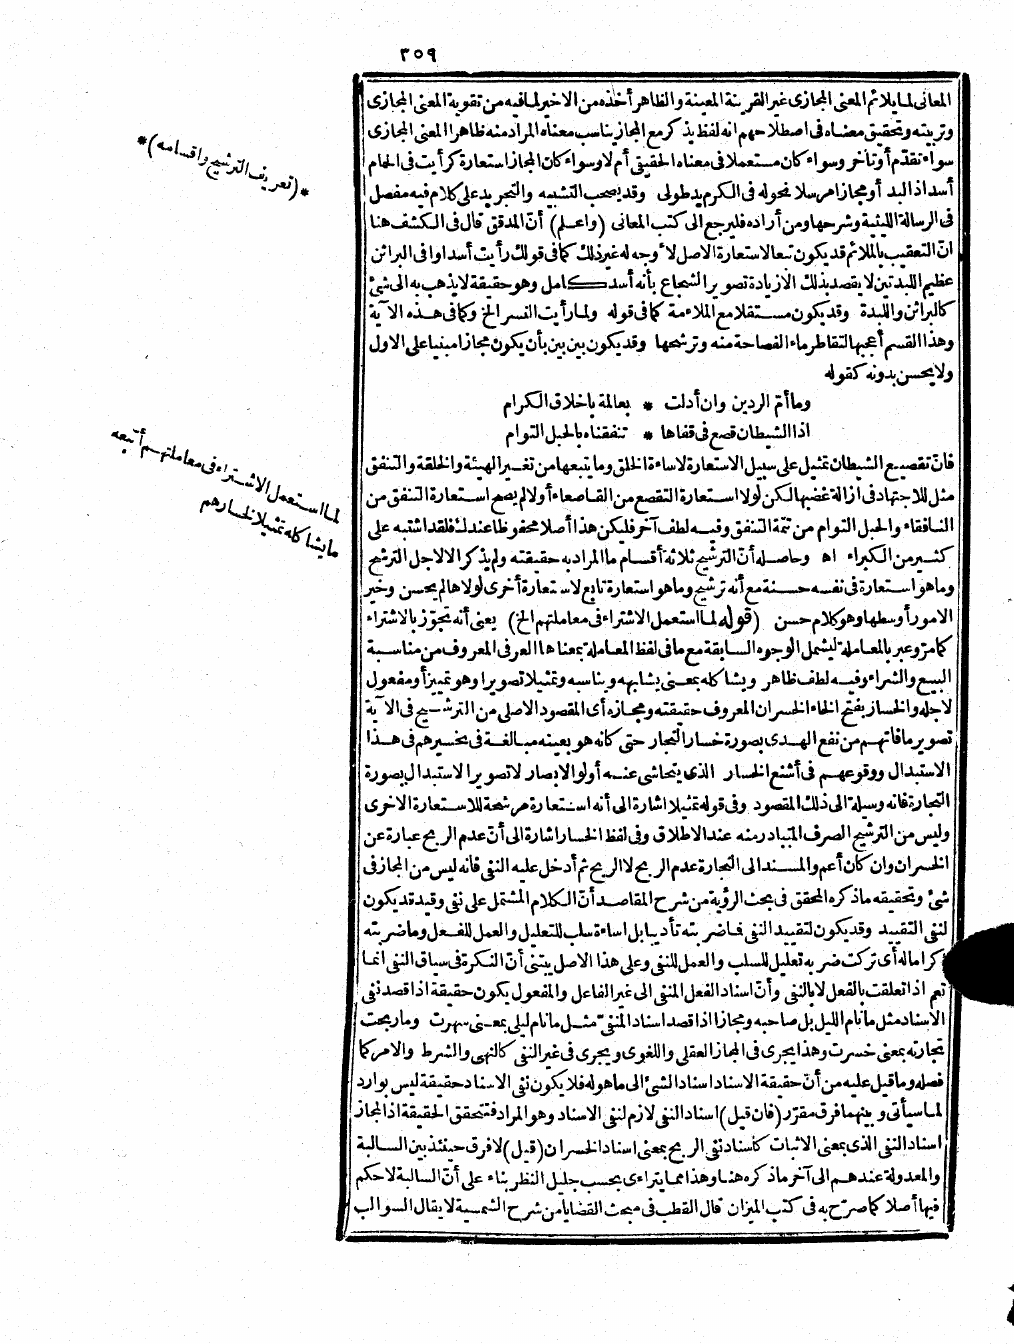 ٣٥٩
المعانى لما يلائم المعنى المجازى غير القرينة المعينة والظاهر أخذه من الاخير لما فيه من تقوية المعنى المجازى
وتربيته وتحقيق معناه فى اصطلاحهم انه لفظ يذكر مع المجاز يناسب معناه المراد منه ظاهرا المعنى المجازى
سواء تقدّم أو تأخر وسواء كان مستعملا فى معناه الحقيقى أم لا وسواء كان المجاز استعارة كرأيت فى الحام
أسدا ذا لبد أو مجازا مرسلا نحو له فى الكرم يد طولى وقد يصحب التشبيه والتجريد على كلام فيه مفصل
فى الرسالة الليثية وشرحها ومن أراده فليرجع الى كتب المعانى (واعلم) أنّ المدقق قال فى الكشف هنا
انّ التعقيب بالملائم قد يكون تبعا لاستعارة الاصل لا وجه له غير ذلك كما فى قولك رأيت أسدا وافى البراثن
عظيم اللبدتين لا يقصد بذلك الا زيادة تصوير الشجاع بأنه أسد كامل وهو حقيقة لا يذهب به الى شئ
كالبراثن واللبدة وقد يكون مستقلا مع الملاءمة كما فى قوله ولما رأيت النسر الخ وكما فى هذه الآية
وهذا القسم أعجبها لتقاطر ماء الفصاحة منه وترشحها وقد يكون بين بين بأن يكون مجازا مبنيا على الاول
ولا يحسن بدونه كقوله
وما أمّ الردين وان أدلت * بعالمة باخلاق الكرام
اذا الشيطان قصع فى قفاها * تنفقناه بالحبل التوام
فانّ تقصيع الشيطان تمثيل على سبيل الاستعارة لاساءة الخلق وما يتبعها من تغيير الهيئة والخلقة والتنفق
مثل للاجتهاد فى ازالة غضبها لكن لولا استعارة التقصع من القاصعاء أولا لم يصح استعارة التنفق من
النافقاء والحبل التوام من تتمّة التنفق وفيه لطف آخر فليكن هذا أصلا محفوظا عندك فلقد اشتبه على
كثير من الكبراء اه وحاصله أنّ الترشيح ثلاثة أقسام ما المراد به حقيقته ولم يذكر الا لاجل الترشيح
وما هو استعارة فى نفسه حسنة مع أنه ترشيح وما هو استعارة تابع لاستعارة أخرى لولاها لم يحسن وخير
الامور أوسطها وهو كلام حسن (قوله لما استعمل الاشتراء فى معاملتهم الخ) يعنى أنه تجوّز بالاشتراء
كما مرّ وعبر بالمعاملة ليشمل الوجوه السابقة مع ما فى لفظ المعاملة بمعناها العرفى المعروف من مناسبة
البيع والشراء وفيه لطف ظاهر ويشاكله بمعنى يشابهه ويناسبه وتمثيلا تصويرا وهو تمييز أو مفعول
لاجله والخسار بفتح الخاء الخسران المعروف حقيقته ومجازه أى المقصود الاصلى من الترشيح فى الآية
تصوير ما فاتهم من نفع الهدى بصورة خسار التجار حتى كأنه هو بعينه مبالغة فى تخسيرهم فى هذا
الاستبدال ووقوعهم فى أشنع الخسار الذى يتحاشى عنه أولو الابصار لا تصوير الاستبدال بصورة
التجارة فانه وسيلة الى ذلك المقصود وفى قوله تمثيلا اشارة الى أنه استعارة مرشحة للاستعارة الاخرى
وليس من الترشيح الصرف المتبادر منه عند الاطلاق وفى لفظ الخسار اشارة الى أنّ عدم الربح عبارة عن
الخسران وان كان أعم والمسند الى التجارة عدم الربح لا الربح ثم أدخل عليه النفى فانه ليس من المجاز فى
شئ وتحقيقه ما ذكره المحقق فى بحث الرؤية من شرح المقاصد أنّ الكلام المشتمل على نفى وقيد قد يكون
لنفى التقييد وقد يكون لتقييد النفى فما ضربته تأديبا بل اساءة سلب للتعليل والعمل للفعل وما ضربته
اكراما له أى تركت ضربه تعليل للسلب والعمل للنفى وعلى هذا الاصل يبتنى أنّ النكرة فى سياق النفى انما
تعم اذا تعلقت بالفعل لا بالنفى وأنّ اسناد الفعل المنفى الى غير الفاعل والمفعول يكون حقيقة اذا قصد نفى
الاسناد مثل ما نام الليل بل صاحبه ومجازا اذا قصد اسناد المنفىّ مثل ما نام ليلى بمعنى سهرت وما ربحت
تجارته بمعنى خسرت وهذا يجرى فى المجاز العقلى واللغوى ويجرى فى غير النفى كالنهى والشرط والامر كما
فصله وما قيل عليه من أنّ حقيقة الاسناد اسناد الشئ الى ما هو له فلا يكون نفى الاسناد حقيقة ليس بوارد
لما سيأتى وبينهما فرق مقرّر (فان قيل) اسناد النفى لازم لنفى الاسناد وهو المراد فتتحقق الحقيقة اذ المجاز
اسناد النفى الذى بمعنى الاثبات كاسناد نفى الربح بمعنى اسناد الخسران (قيل) لا فرق حينئذ بين السالبة
والمعدولة عندهم الى آخر ما ذكره هنا وهذا مما يتراءى بحسب جليل النظر بناء على أنّ السالبة لا حكم
فيها أصلا كما صرّح به فى كتب الميزان قال القطب فى مبحث القضايا من شرح الشمسية لا يقال السوالب
*(تعريف الترشيح وأقسامه)*
لما استعمل الاشتراء فى معاملتهم أتبعه
ما يشاكله تمثيلا لخسارهم